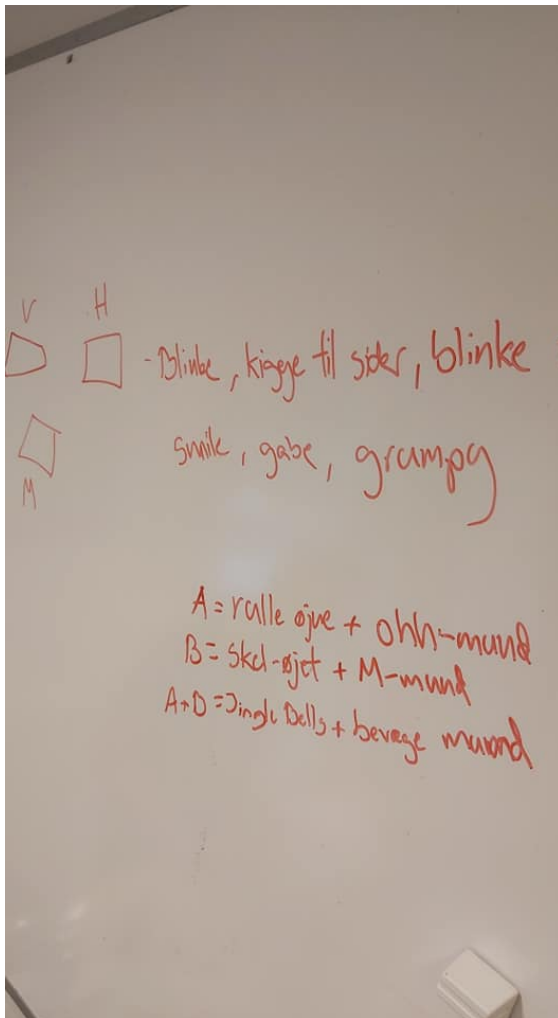 V H
- Blinke, kigge til sider, blinke
smile, gabe, grumpy
M
A = rulle øjne + ohh-mund
B = skel-øjet + M-mund
A+B = Jingle Bells + bevæge mund